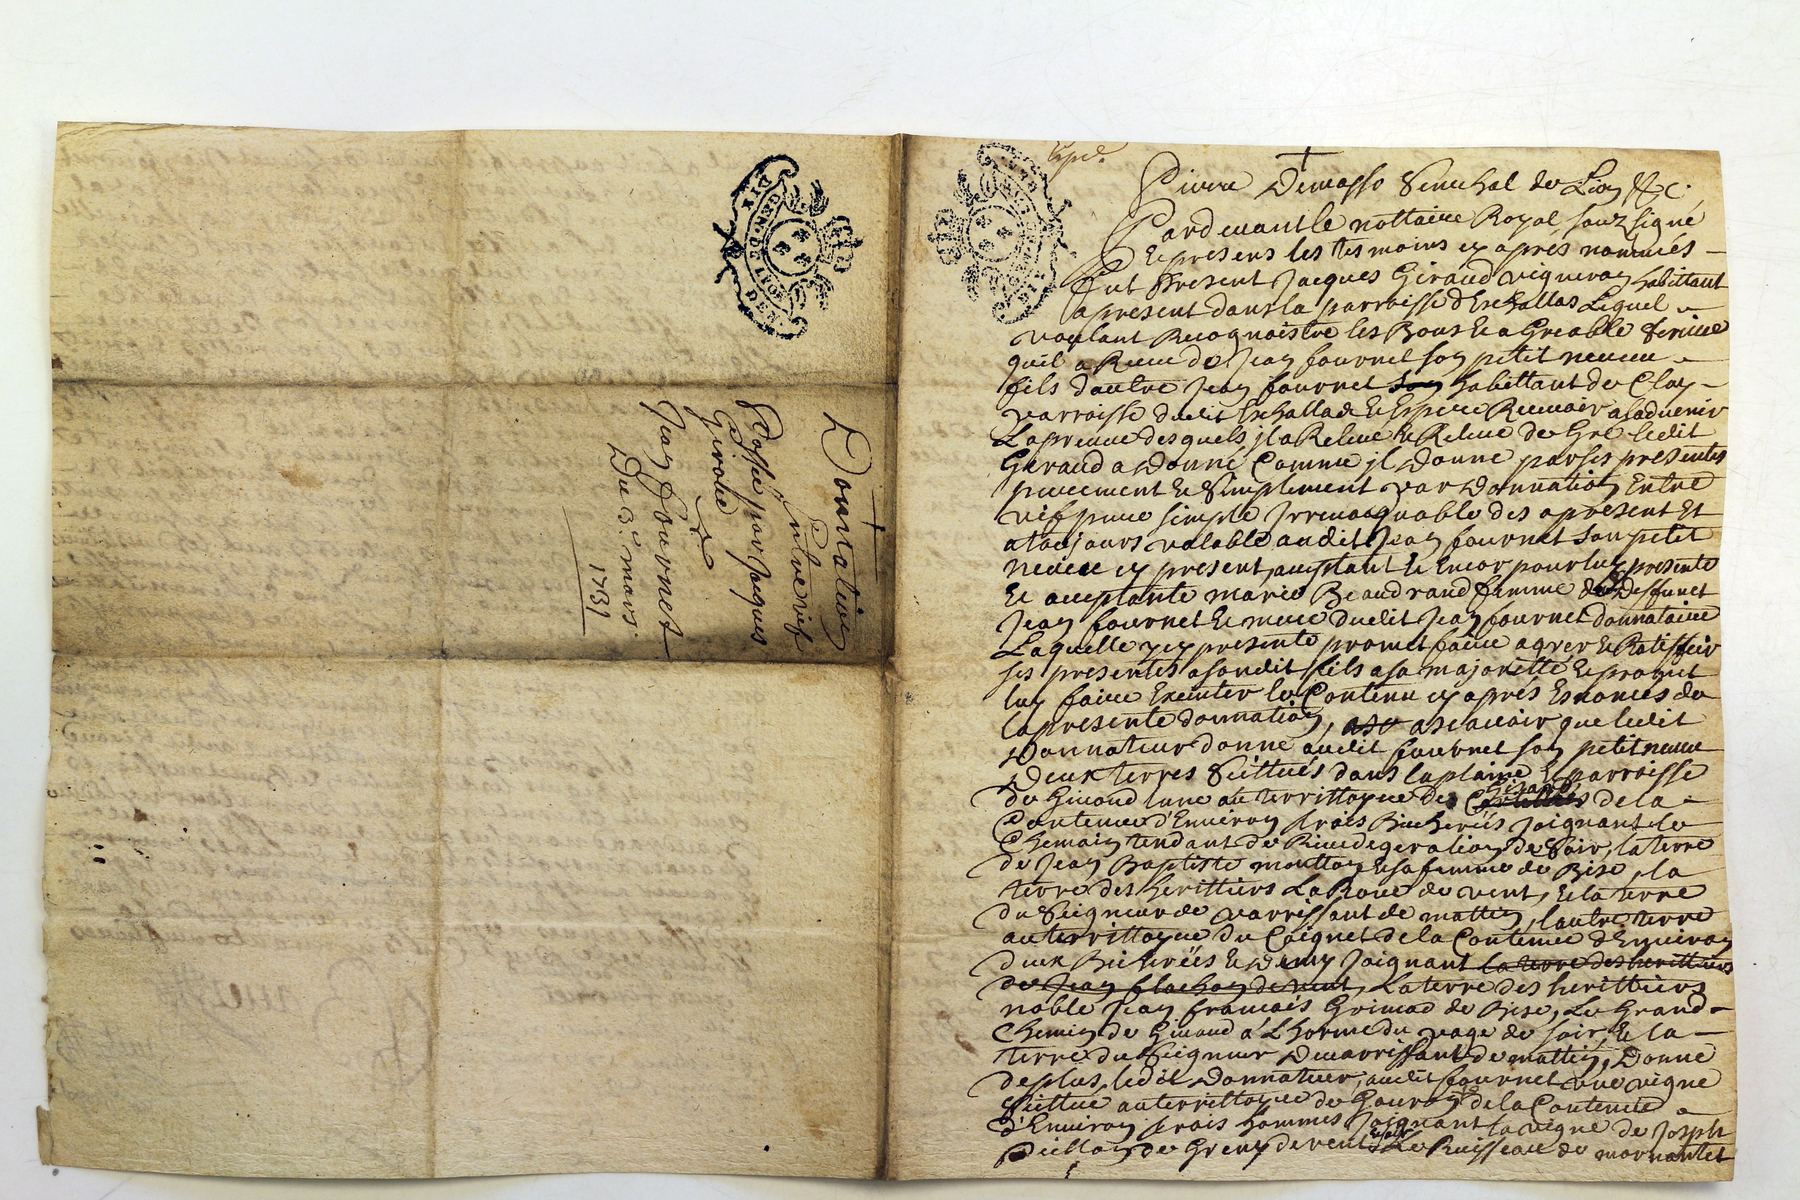 DIX
GEN. DE LYON
DEN.
Donnation
Entre vif
passé par Jaques
Giraud
a
Jean Fournet
Du 3e mars
1731
Expé.
Pierre Demasso Senechal de Lion &c.
Pardevant le nottaire Royal souzsigné
Et presens les tesmoins cy aprés nommés
fut Present Jacques Giraud vigneron habittant
apresent dans la parroisse d'Eschallas Lequel
voulant Recognoistre les Bons Et a Greable service
quil a Receu de Jean fournet son petit neveu
fils d'autre Jean fournet son habittant de Clay
parroisse dudit Eschallas Et Espere Recevoir aladvenir
La preuve desquels jl a Releve Et Releve de Gré Ledit
Geraud a Donné Comme jl Donne par ses presentes
purement Et Simplement par Donnation Entre
vif pure simple Jrrevocquable des apresent Et
a toujours valable audit Jean fournet Son petit
neveu cy present, acceptant Et Encor pour luy presente
Et acceptante marie Beaudrand femme de deffunct
Jean fournet Et mere dudit Jean fournet donnataire
Laquelle cy presente promet faire agreer Et Ratiffier
ses presentes a sondit fils a sa majoritté Et promet
luy faire Executer le Contenu cy aprés Enoncés de
la presente donnation, asc ascavoir que ledit
Donnateur donne audit fournet son petit neveu
Deux terres Scittués dans la plaine Et parroisse
de Givord lune au territtoyre des de la
Contenue d'Environ trois Bicherées Joignant le
Chemin tendant de Rivedegier a Lion de Soir, la terre
de Jean Baptiste moutton Et sa femme de Bise, la
terre des herittiers La Roue de vent, Et la terre
du Seigneur de varrissant de mattin, lautre terre
au territtoyre du Coignet de la Contenue d'Environ
deux Bicherées Et Demy Joignant la terre des herittiers
de Jean flachon de vent, La terre des herittiers
noble Jean francois Grimod de Bise, Le Grand
Chemin de Givord a L'horme du page de soir, Et la
terre du Seigneur Devarrissant de mattin, Donne
de plus ledit Donnateur, audit fournet une vigne
Scittue au territtoyre de Gouron de la Contenue
d'Environ trois hommes Joignant la vigne de Joseph
de vent Le Ruisseau de mornantet